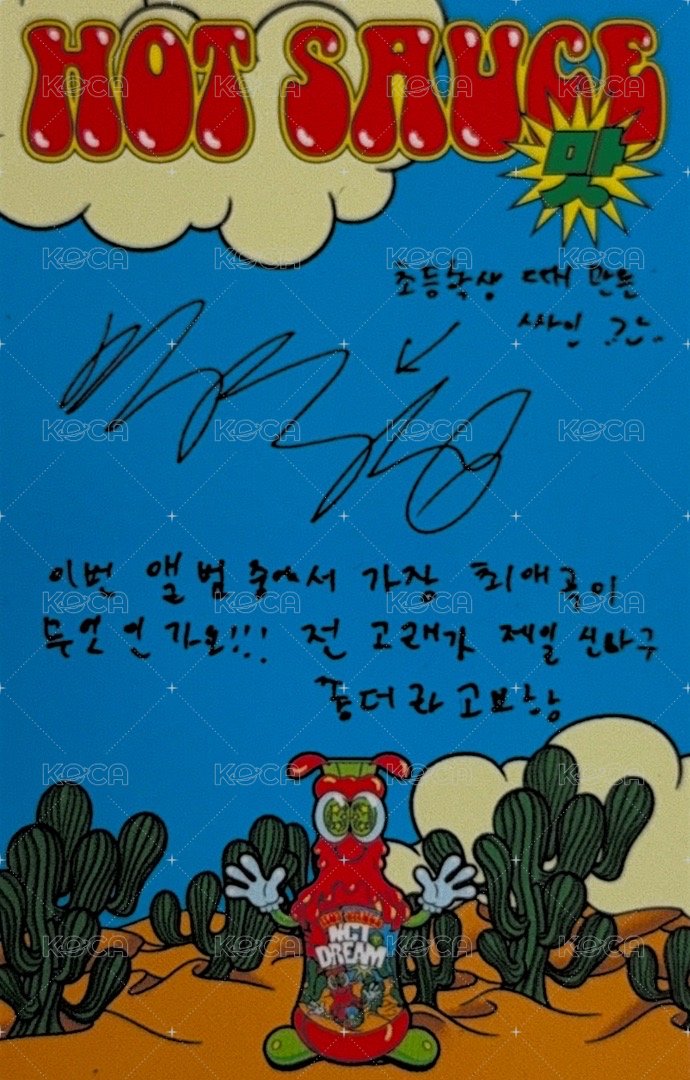 HOT SAUCE
맛
초등학생 때 만든
싸인
이번 앨범 중에서 가장 최애곡이
무언인가요!!! 전 고래가 제일 신나구
좋더라고
NCT
DREAM
KOCA